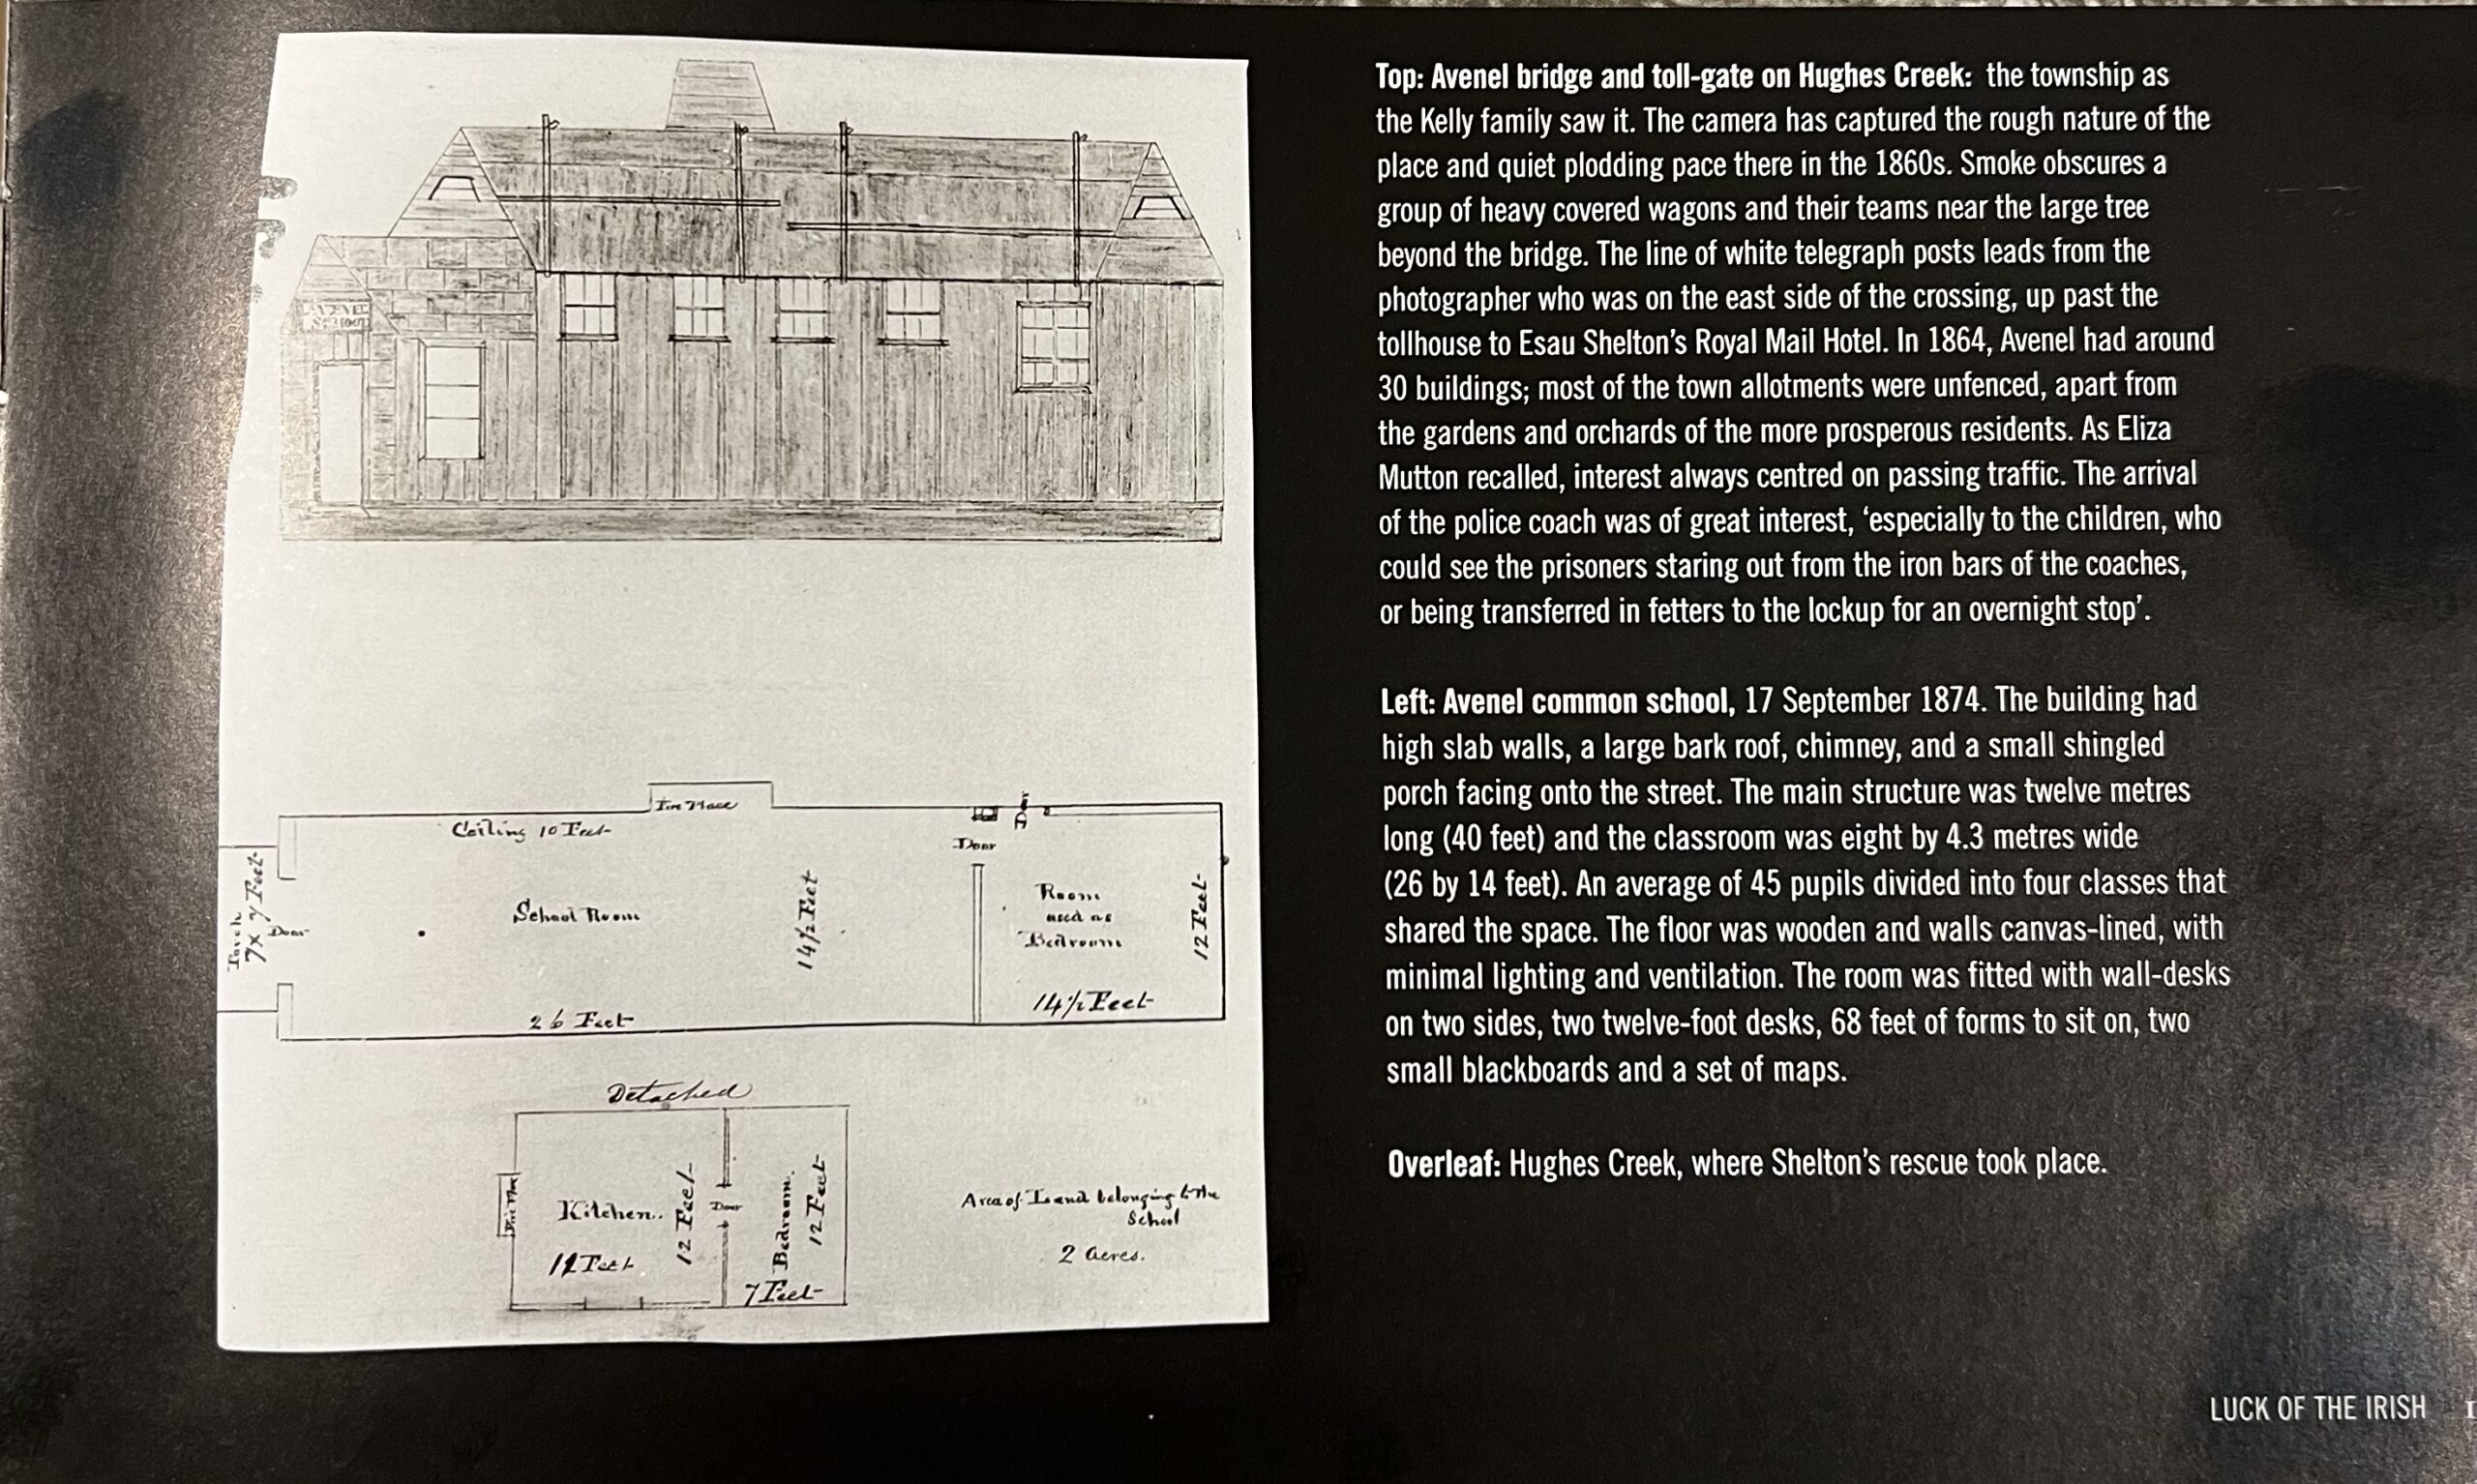 AVENEL
SCHOOL
Fire Place
Ceiling 10 Feet
Door
Door
Porch
7 x 7 Feet
Door
School Room
14 1/2 Feet
Room
used as
Bedroom
12 Feet
14 1/2 Feet
26 Feet
Detached
Fire Place
Kitchen..
12 Feet
12 Feet
Door
Bedroom.
12 Feet
7 Feet
Area of Land belonging to the
School
2 acres.
Top: Avenel bridge and toll-gate on Hughes Creek: the township as
the Kelly family saw it. The camera has captured the rough nature of the
place and quiet plodding pace there in the 1860s. Smoke obscures a
group of heavy covered wagons and their teams near the large tree
beyond the bridge. The line of white telegraph posts leads from the
photographer who was on the east side of the crossing, up past the
tollhouse to Esau Shelton’s Royal Mail Hotel. In 1864, Avenel had around
30 buildings; most of the town allotments were unfenced, apart from
the gardens and orchards of the more prosperous residents. As Eliza
Mutton recalled, interest always centred on passing traffic. The arrival
of the police coach was of great interest, ‘especially to the children, who
could see the prisoners staring out from the iron bars of the coaches,
or being transferred in fetters to the lockup for an overnight stop’.
Left: Avenel common school, 17 September 1874. The building had
high slab walls, a large bark roof, chimney, and a small shingled
porch facing onto the street. The main structure was twelve metres
long (40 feet) and the classroom was eight by 4.3 metres wide
(26 by 14 feet). An average of 45 pupils divided into four classes that
shared the space. The floor was wooden and walls canvas-lined, with
minimal lighting and ventilation. The room was fitted with wall-desks
on two sides, two twelve-foot desks, 68 feet of forms to sit on, two
small blackboards and a set of maps.
Overleaf: Hughes Creek, where Shelton’s rescue took place.
LUCK OF THE IRISH